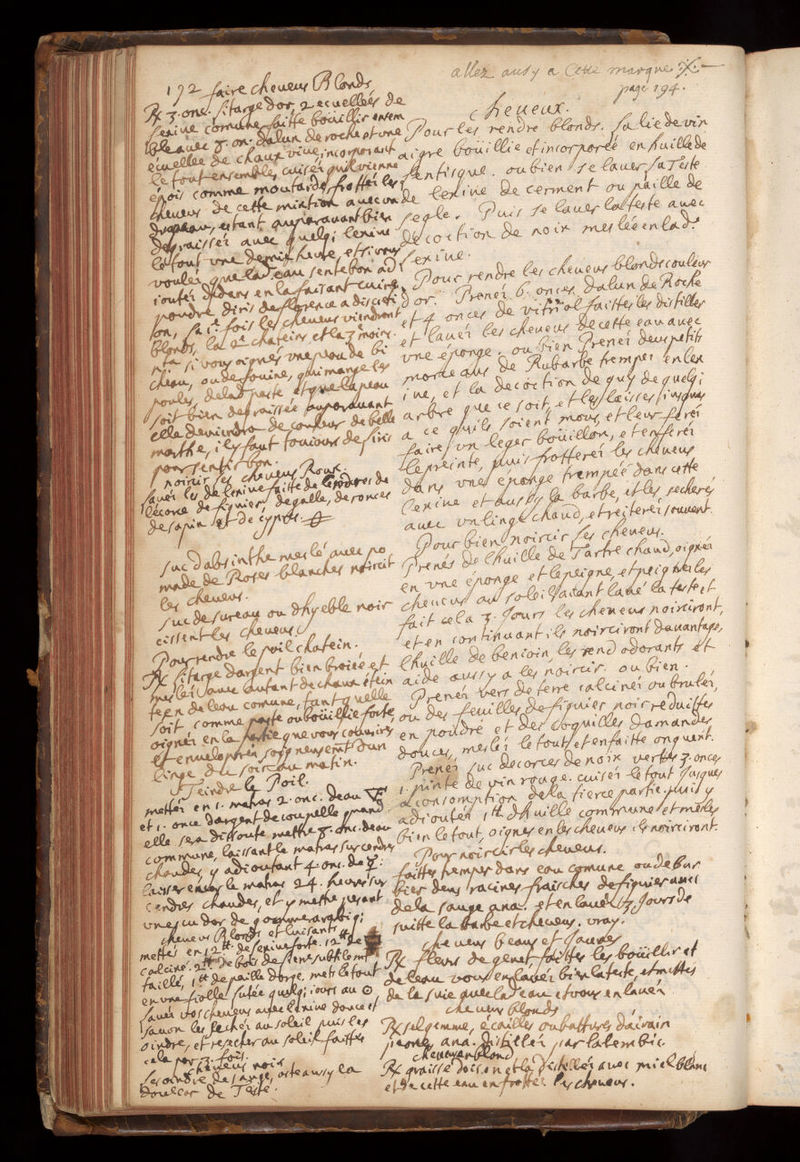 192 faire cheveux Blonds
℞ 3. onc. litarge dor, 2 ecuellées de
lexiue comune faitte bouillir ensem
ble auec 3. on. dalun de roche et une
ecuellee de chaux viue, incorporant
le tout ensemble, cuisés quil vienne
epois comme moutarde, frottés les
cheueux de cette mixtion auec un
drappeau, estant auparauant bien
degraissés auec quelq; lexiue
le tout une demie heure, et si vous
voulés que la eau sente bon ad
ioutés dedans en la faisant cuire,
poudre diris de florence a discreti
on, la 1ᵉ fois les cheueux viendront
blonds, la 2ᵉ chateins et la 3 noirs.
si vous oignés une peau de bi
cheau, ou de fouine, qui mange les
poules, de lad. paste et que la peau
soit bien degraissée auparauant
elle deviendra de couleur de belle
marthe, il y faut toujours de liris
pour sentir bon.
noircir les cheueux Roux.
laués les de lexiue faitte de cendres de
lecorce de figuier, de galle, de ronces
de sapin et de cyprés.
suc dabsinthe meslé auec po
made de Roses blanches noircit
les cheueux.
suc de sureau ou dhyeble noir
cissent les cheueux
Pour rendre le poil chatein.
℞ litarge dargent bien broiée et
meslés auec autant de chaux étein
te en de leau comune, tant quelle
soit comme paste ou bouillie forte
oignés en la partie que vous couurirés
et enuelopérés soigneusement dun
linge du soir au matin.
Teindre le Poil.
mettés en 1. matras 2. onc. deau
et 1. once dargent de coupelle quand
elle sera dissoute mettés 3. onc. deau
commune, laissant le matras sur cendres
chaudes, y adioutant 4. onc. de
laisser encor le matras 24. heures sur
cendres chaudes, et y mettre pesant
un escu dor de gomme arabiq;
cheueux Blonds et luisants
mettés en 12 ℔. de lexiue forte. 12 ℔ de
calciné. 2 ℔ de bois de subtilemt
taillé, 1 ℔ de paille dorge. mets le tout
en une fiolle lutée quelq; iours au ☉
laués vos cheueux auec lexiue douce et
sauon les sechés au soleil puis les
oindre, et resecher au soleil faittes
cela par 3. fois.
cheueux noirs
Les oindre de sange, oste aussy la
douleur de Teste.
allez aussy a Cette marque
page 194.
cheueux.
Pour les rendre blonds. La lie de vin
aigre bouillie et incorporée en huille de
lentisque. ou bien se lauer la Teste
de lexiue de cerment ou paille de
segle. Puis se lauer la teste auec
decoction de noix meslée en lad.ᵉ
lexiue.
Pour rendre les cheueux blonds couleur
dor. Prenés 6. onces dalun de Roche
et 4 onces de vitriol faittes les distiller
et laués les cheueux de cette eau auec
une éponge. ou bien Prenés deux petits
morceaux de Rubarbe trempés en lex
iue, et la decoction de guy de quelq;
arbre que ce soit, et les laisses jusques
a ce quils soient mous, et leur ferés
faire un leger bouillon, et en ferés
lepreinte, puis frotterés les cheueux
dans une éponge trempée dans cette
lexiue et aussy la barbe, et les secherés
auec un linge chaud, et reiterés souuent.
Pour bien noircir les cheueux.
Prenés de lhuille de Tartre chaud, oignés
en une éponge et le peigne, et peignés les
cheueux au soleil ayant laué la teste et
fait cela 3. jours les cheueux noirciront,
et en continuant, ils noirciront dauantage,
lhuille de benioin, les rend odorants et
aide aussy a les noircir. ou bien.
Prenés vers de terre calcinés ou brulés,
ou des feuilles de figuier noir reduittes
en poudre et des coquilles damandes
douces, meslés le tout et en faitte onguent.
Prenés suc decorces de noix vertes 3. onces
1. pinte de vin rouge. cuisés le tout jusques
a consomption de la tierce partie. puis y
adioutés 1 ℔ dhuille commune et meslés
bien le tout, oignés en les cheueux ils noirciront.
Pour noircir les cheueux.
faittes tremper dans eau comune ou de Bar
bier deux racines fraisches de figuier auec
de la sauge ana. et en laués 3 jours de
suitte la barbe et cheueux. vray.
cheueux beaux et Jaunes
℞ fleurs de genet faittes les boüillir et
de leau vous en laués bien la teste, et mettes
de la suie auec la eau et vous en laués
cheueux blonds
℞ sel gemme, écailles ou batture dairain
ana. distillés par lalembic.
cheueux en blond
℞ graisse doison et la distillés auec miel blanc
et de cette eau en frottés les cheueux.